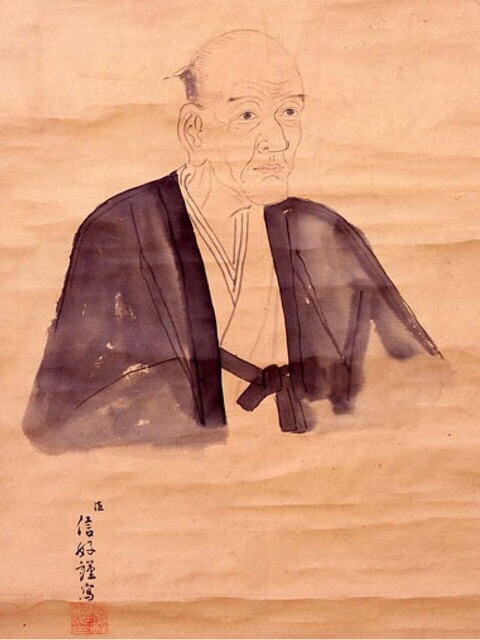 臣信好謹寫